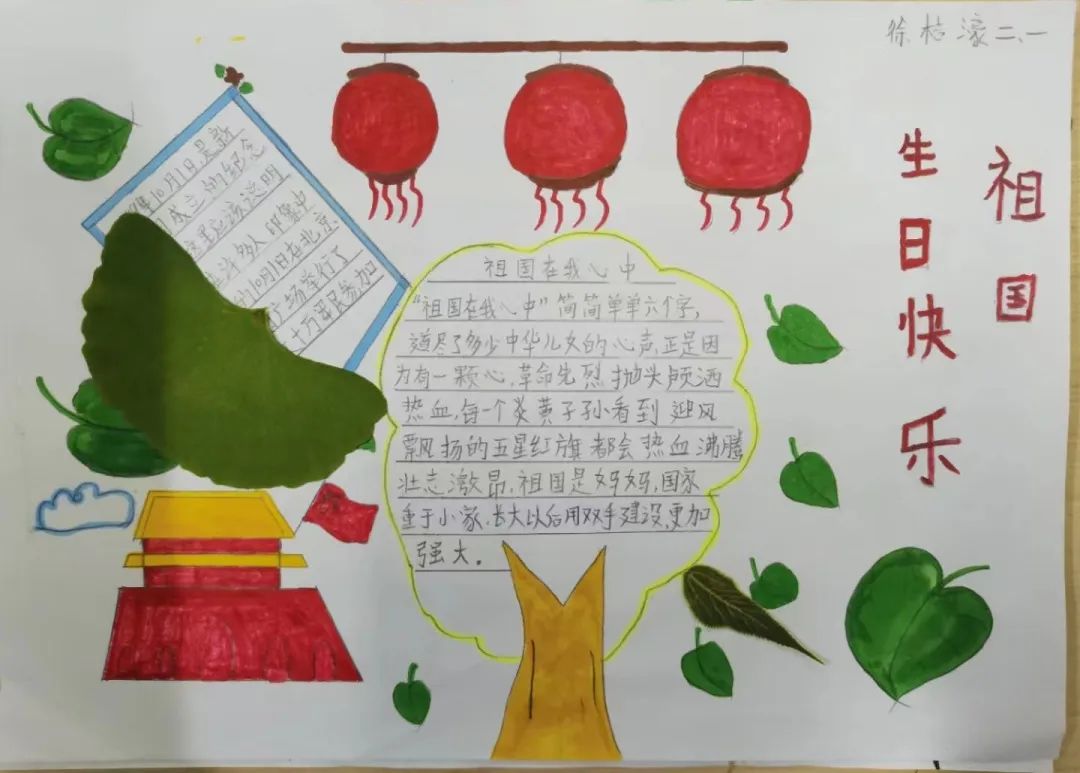 徐桔濠二、一
祖国
生日快乐
年10月1日,是新
成立的纪念
这里应该说明
许多人明窜中
10月1日在北京
广场举行了
十万军民参加
祖国在我心中
“祖国在我心中”简简单单六个字,
道尽了多少中华儿女的心声,正是因
为有一颗心,革命先烈抛头颅洒
热血,每一个炎黄子孙看到迎风
飘扬的五星红旗都会热血沸腾
壮志激昂,祖国是妈妈,国家
重于小家,长大以后用双手建设,更加
强大。